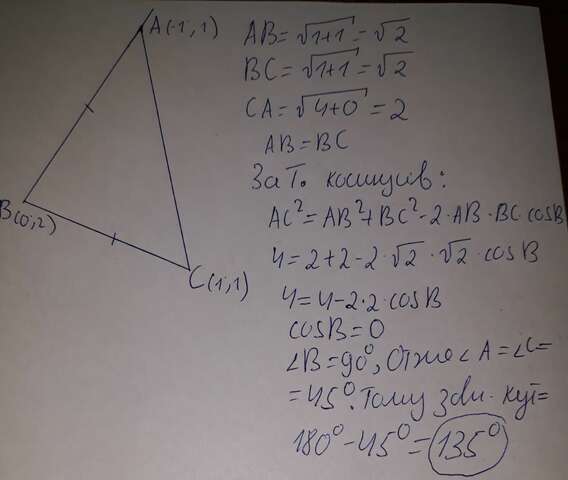 A(-1,1)
B(0;2)
C(1,1)
AB = √1+1 = √2
BC = √1+1 = √2
CA = √4+0 = 2
AB = BC
За Т. косинусів:
AC² = AB² + BC² - 2·AB·BC·cosB
4 = 2 + 2 - 2·√2·√2·cosB
4 = 4 - 2·2·cosB
cosB = 0
∠B = 90°, Отже ∠A = ∠C =
= 45°. Тому зовн. кут =
180° - 45° = 135°